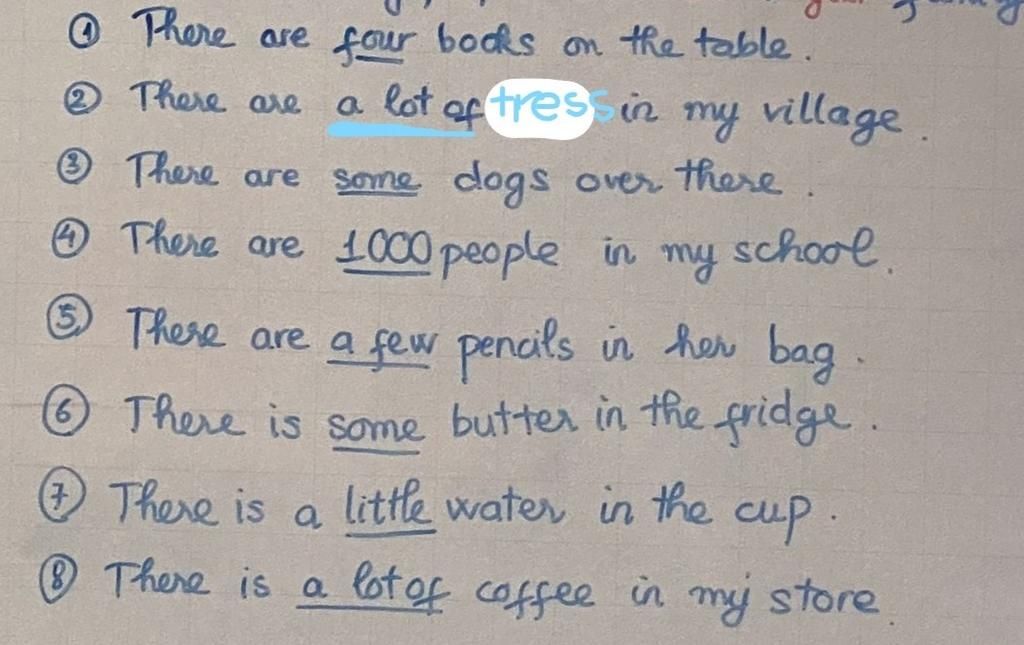 ① There are four books on the table.
② There are a lot of tress in my village.
③ There are some dogs over there.
④ There are 1000 people in my school.
⑤ There are a few pencils in her bag.
⑥ There is some butter in the fridge.
⑦ There is a little water in the cup.
⑧ There is a lot of coffee in my store.